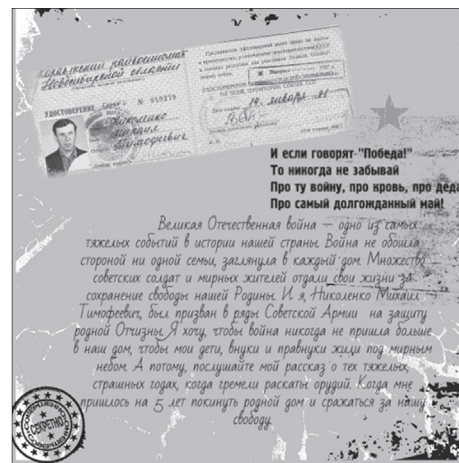 райвоенкомат
Новосибирской области
УДОСТОВЕРЕНИЕ Серия Г № 059279
Николенко
Михаил
Тимофеевич
14. января 81
И если говорят "Победа!"
То никогда не забывай
Про ту войну, про кровь, про деда
Про самый долгожданный май!
Великая Отечественная война – одно из самых
тяжелых событий в истории нашей страны. Война не обошла
стороной ни одной семьи, заглянула в каждый дом. Множество
советских солдат и мирных жителей отдали свои жизни за
сохранение свободы нашей Родины. И я, Николенко Михаил
Тимофеевич, был призван в ряды Советской Армии на защиту
родной Отчизны. Я хочу, чтобы война никогда не пришла больше
в наш дом, чтобы мои дети, внуки и правнуки жили под мирным
небом. А потому, послушайте мой рассказ о тех тяжелых,
страшных годах, когда гремели раскаты орудий. Когда мне
пришлось на 5 лет покинуть родной дом и сражаться за нашу
свободу.
СОВЕРШЕННО
СЕКРЕТНО
СОВЕРШЕННО